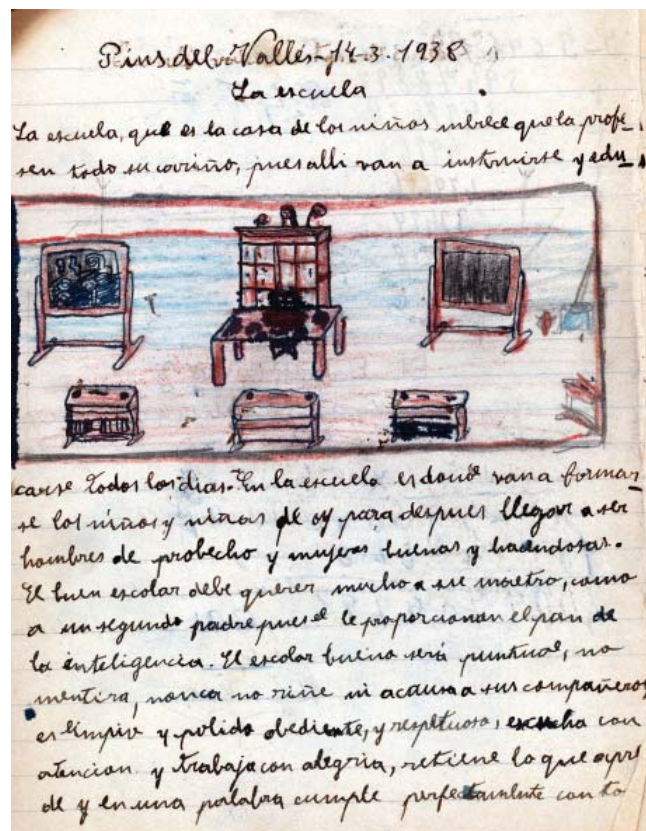 Pins del Vallés - 14-3-1938
La escuela
La escuela, que es la casa de los niños mbrece que la profe-
sen todo su cariño, pues alli van a instruirse y edu-
carse todos los dias. En la escuela es donde van a formar-
se los niños y niñas de oy para despues llegar a ser
hombres de probecho y mujeras buenas y hacendosas.
El buen escolar debe querer mucho a su maetro, como
a un segundo padre pues el le proporcionan el pan de
la inteligencia. El escolar bueno será puntual, no
mentira, nonca no riñe ni acausa a sus compañeros
es limpio y polido obediente, y respetuoso, escucha con
atencion y trabaja con alegria, retiene lo que apre
de y en una palabra cumple perfectamente con to